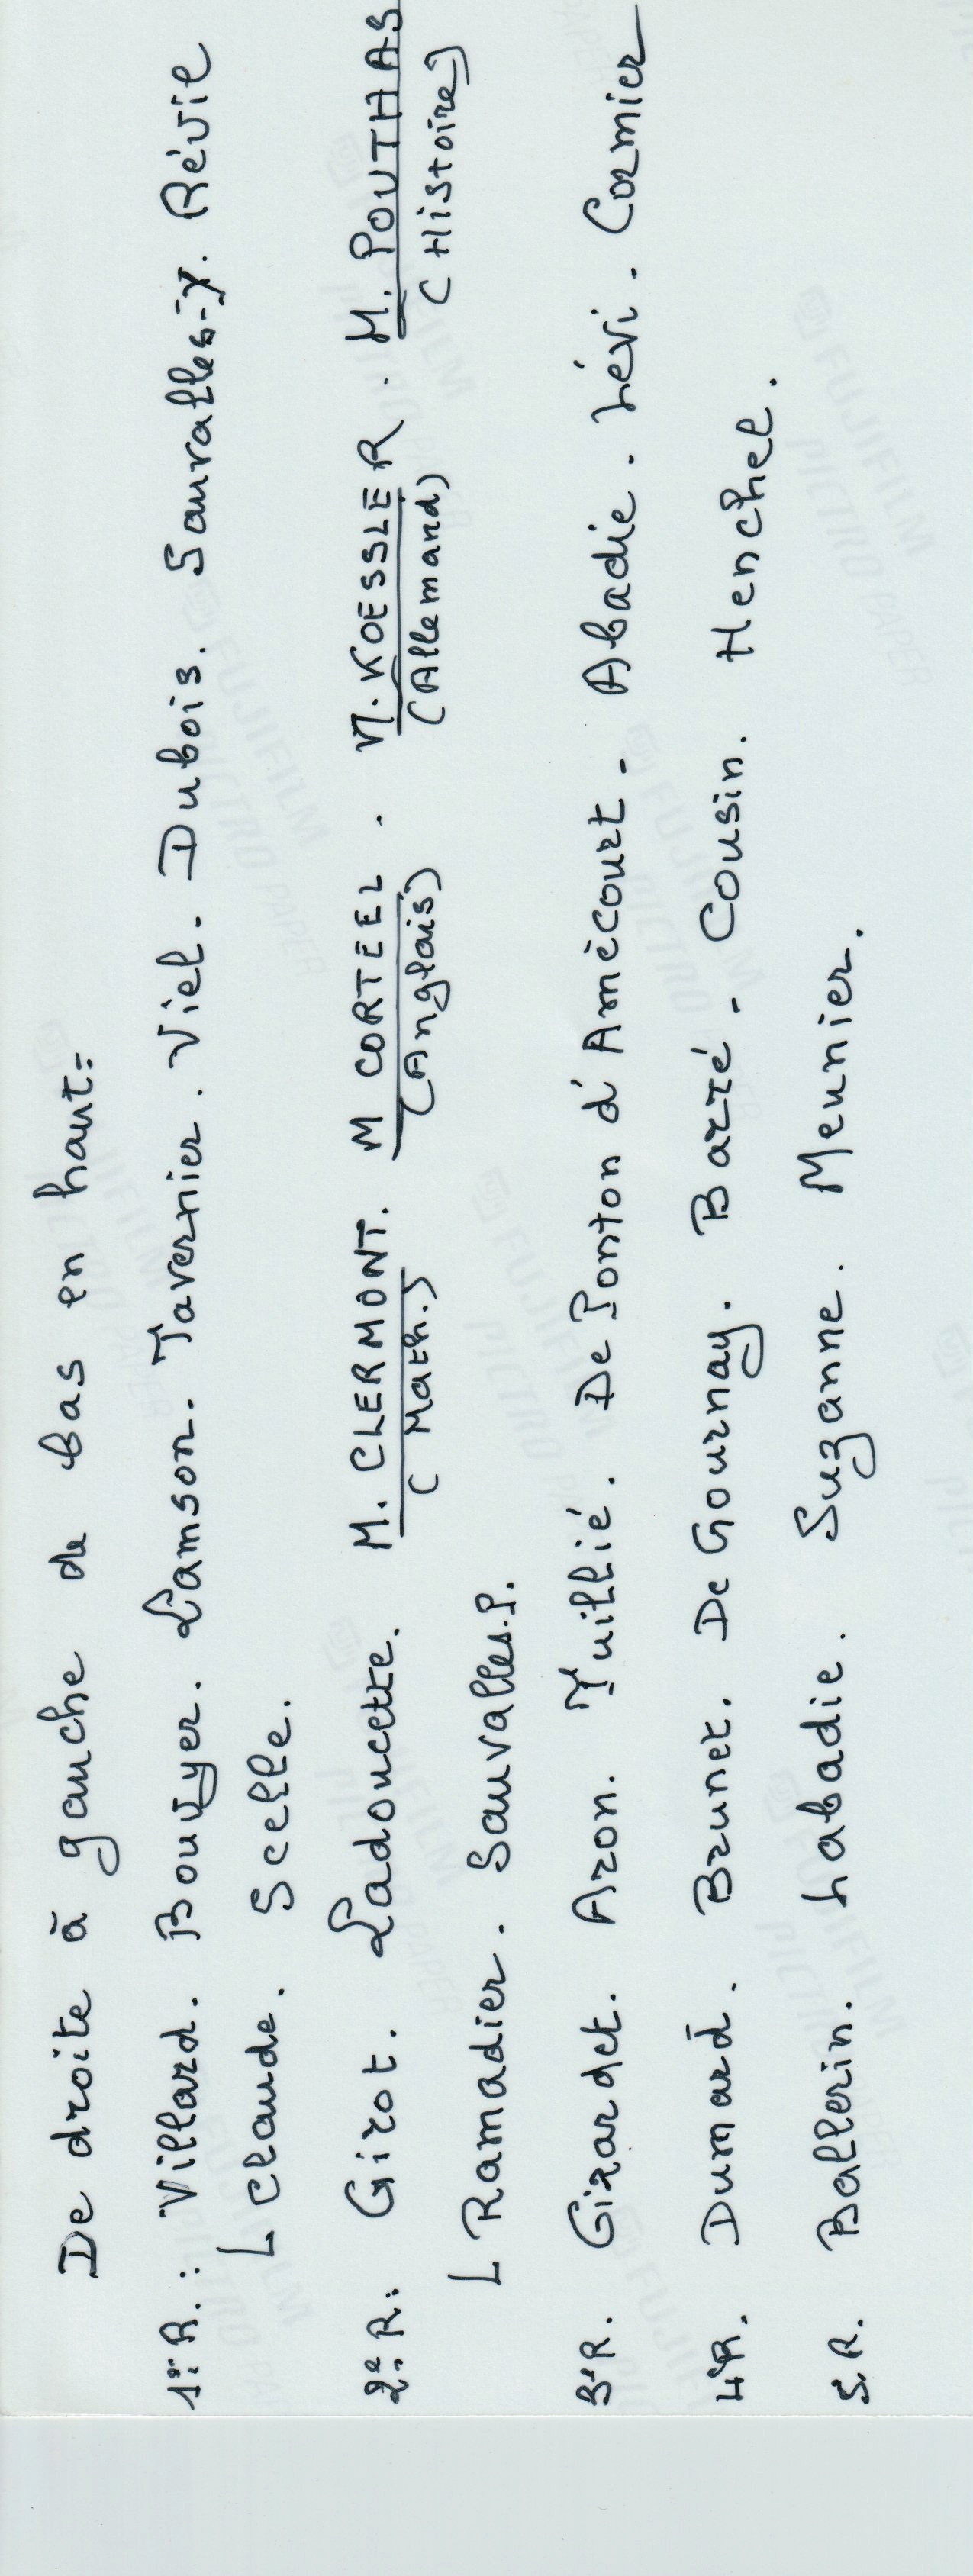 De droite à gauche de bas en haut=
1er R.: Villard. Bouyer. Lamson. Tavernier. Viel. Dubois. Sauvalles-Y. Révie
Claude. Scelle.
2e R.: Girot. Ladoucette. M. CLERMONT. M CORTEEL. M. KOESSLER. M. POUTHAS
(Math.) (Anglais) (Allemand) (Histoire)
Ramadier. Sauvalles.P.
3e R. Girardet. Aron. Tuillié. De Ponton d'Amécourt - Abadie. Lévi. Cormier
4e R. Dumard. Brunet. De Gournay. Barré - Cousin. Henchel.
5. R. Ballerin. Labadie. Suzanne. Meunier.
FUJIFILM
PICTRO PAPER